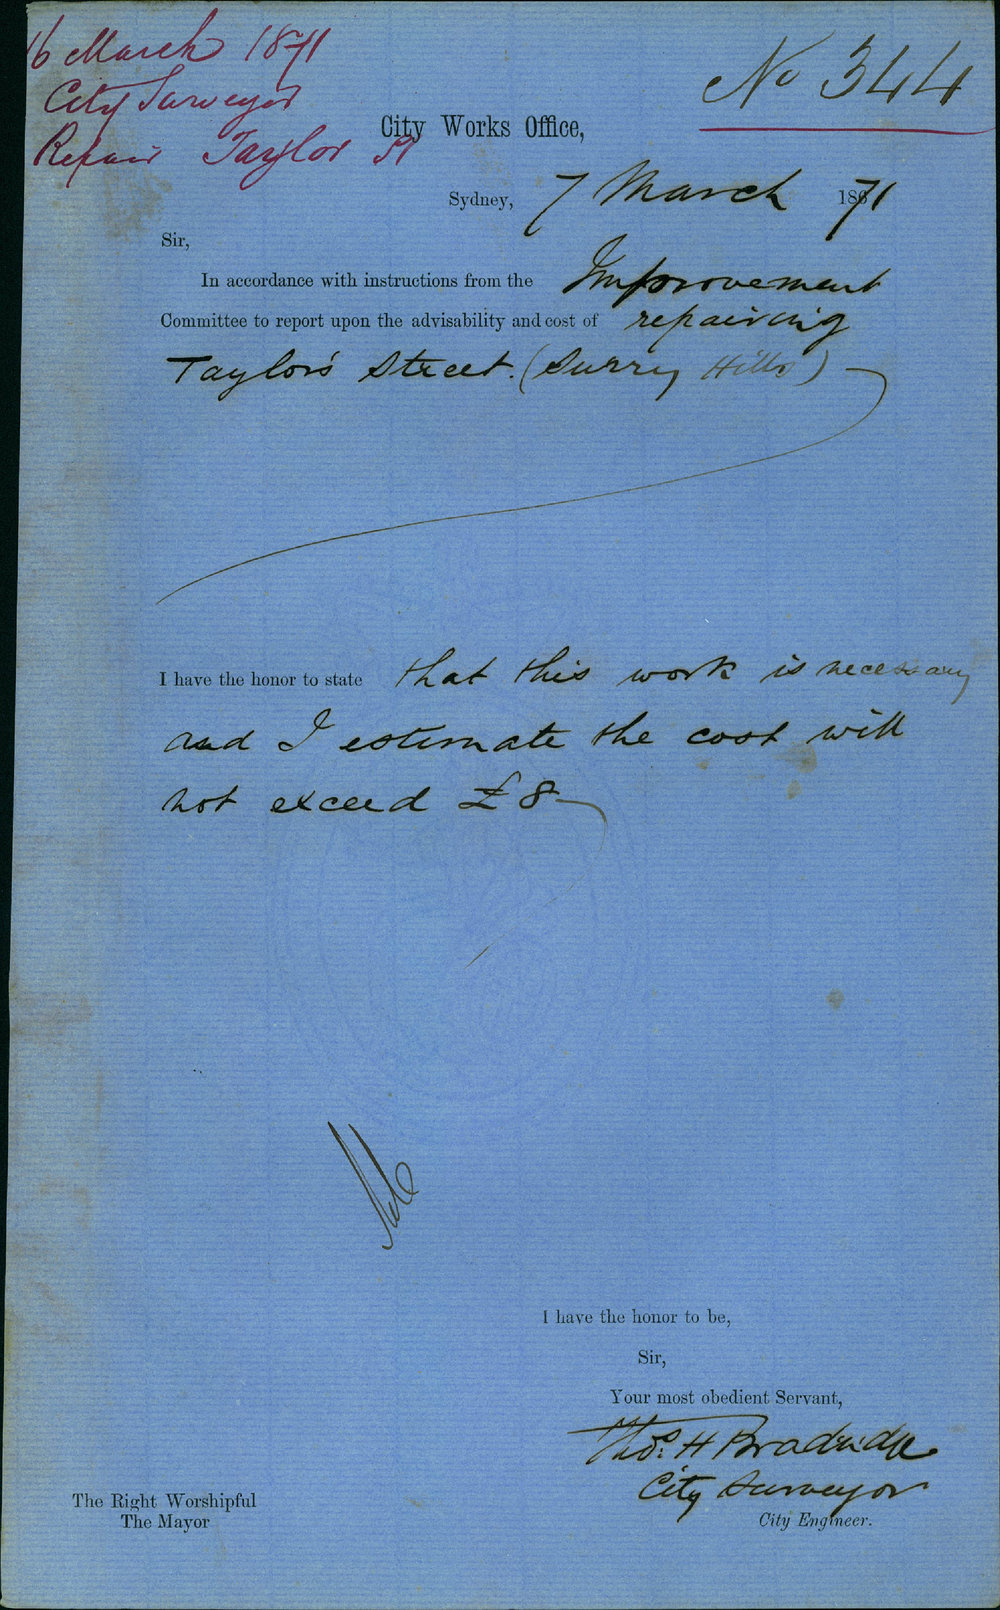 16 March 1871
City Surveyor
Repair Taylor St
No 344
City Works Office,
Sydney, 7 March 1871
Sir,
In accordance with instructions from the Improvement
Committee to report upon the advisability and cost of repairing
Taylor's Street. (Surry Hills)
I have the honor to state that this work is necessary
and I estimate the cost will
not exceed £8
I have the honor to be,
Sir,
Your most obedient Servant,
Thos. H Bradridge
City Surveyor
City Engineer.
The Right Worshipful
The Mayor